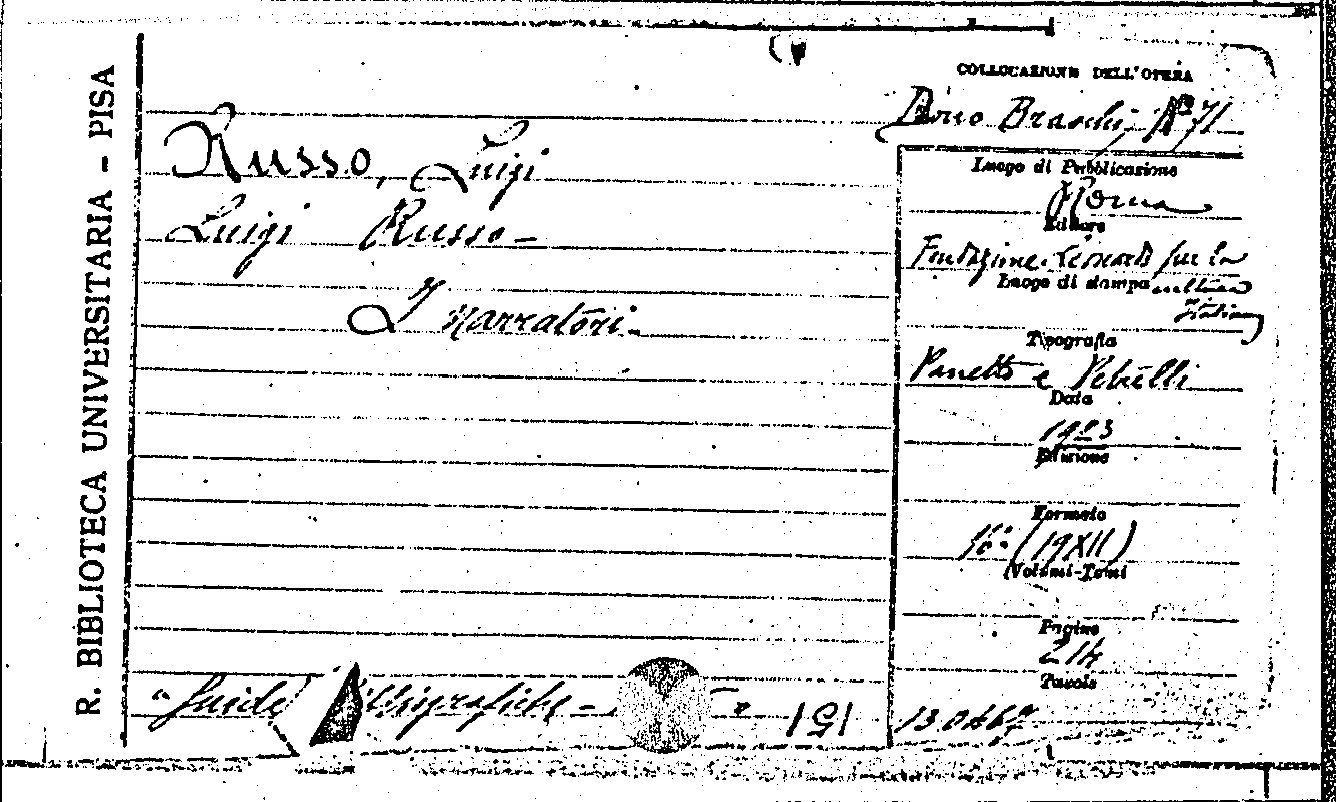 R. BIBLIOTECA UNIVERSITARIA - PISA
COLLOCAZIONE DELL'OPERA
Dono Braschi, N° 71
Russo, Luigi
Luigi Russo -
I narratori -
Luogo di Pubblicazione
Roma
Editore
Fondazione Leonardo per la
cultura
Italiana
Luogo di stampa
Tipografia
Panetto e Petrelli
Data
1923
Edizione
Formato
16° (19XII)
Volumi-Tomi
Pagine
214
Tavole
"Guide Bibliografiche - "